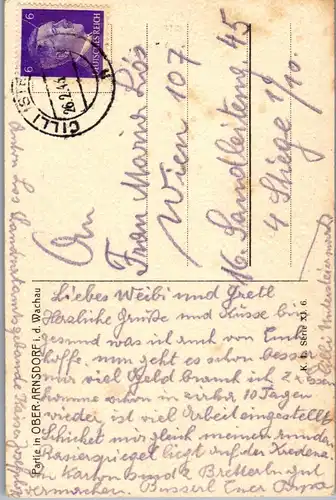 6
6
DEUTSCHES REICH
CILLI
26.2.43
An
Frau Maria Lös
Wien 107.
16. Sandleiteng. 45
4 Stiege 1/10.
Liebes Weibi und Gretl
Herzliche Grüße und Küsse bin
gesund was ich auch von Euch
hoffe, nun geht es schon besser
nur viel Geld brauch ich
komme schon in zirka 10 Tagen
wieder, ist viel Arbeit eingestellt
Schicket mir gleich meinen runden
Rasierspiegel liegt auf der Kredenz
in Karton und 2 Bretterln gut
vermachen. Busserl Euer Papa
Partie in OBER-ARNSDORF i. d. Wachau
K. L. Serie XI. 6
Anton Lös
Cilli